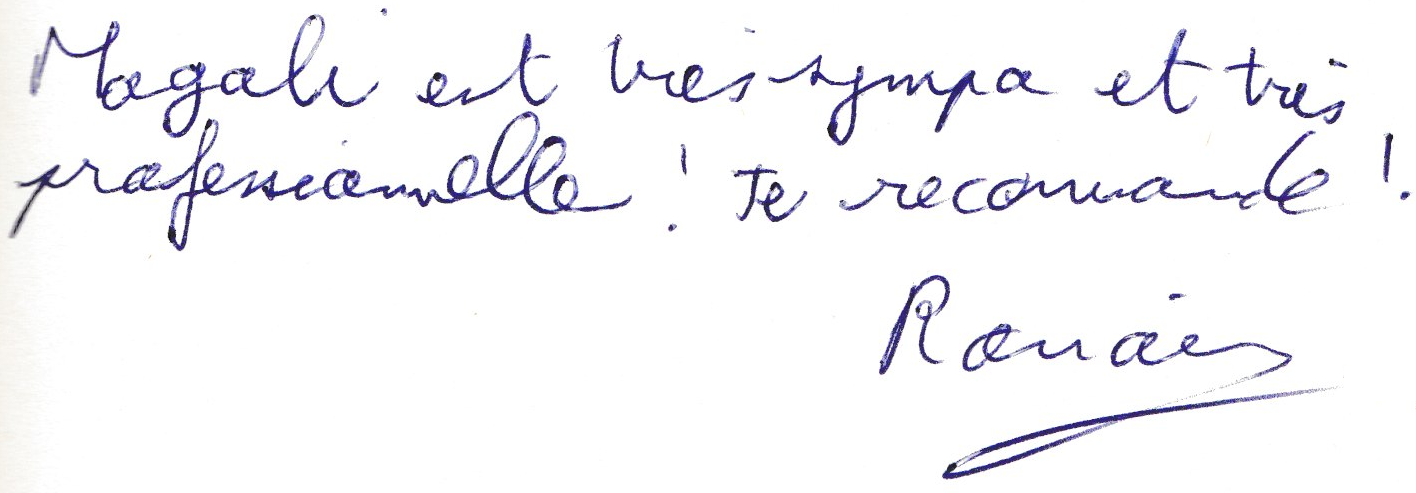 Magali est très sympa et très
professionnelle ! Je recommande !
Romain